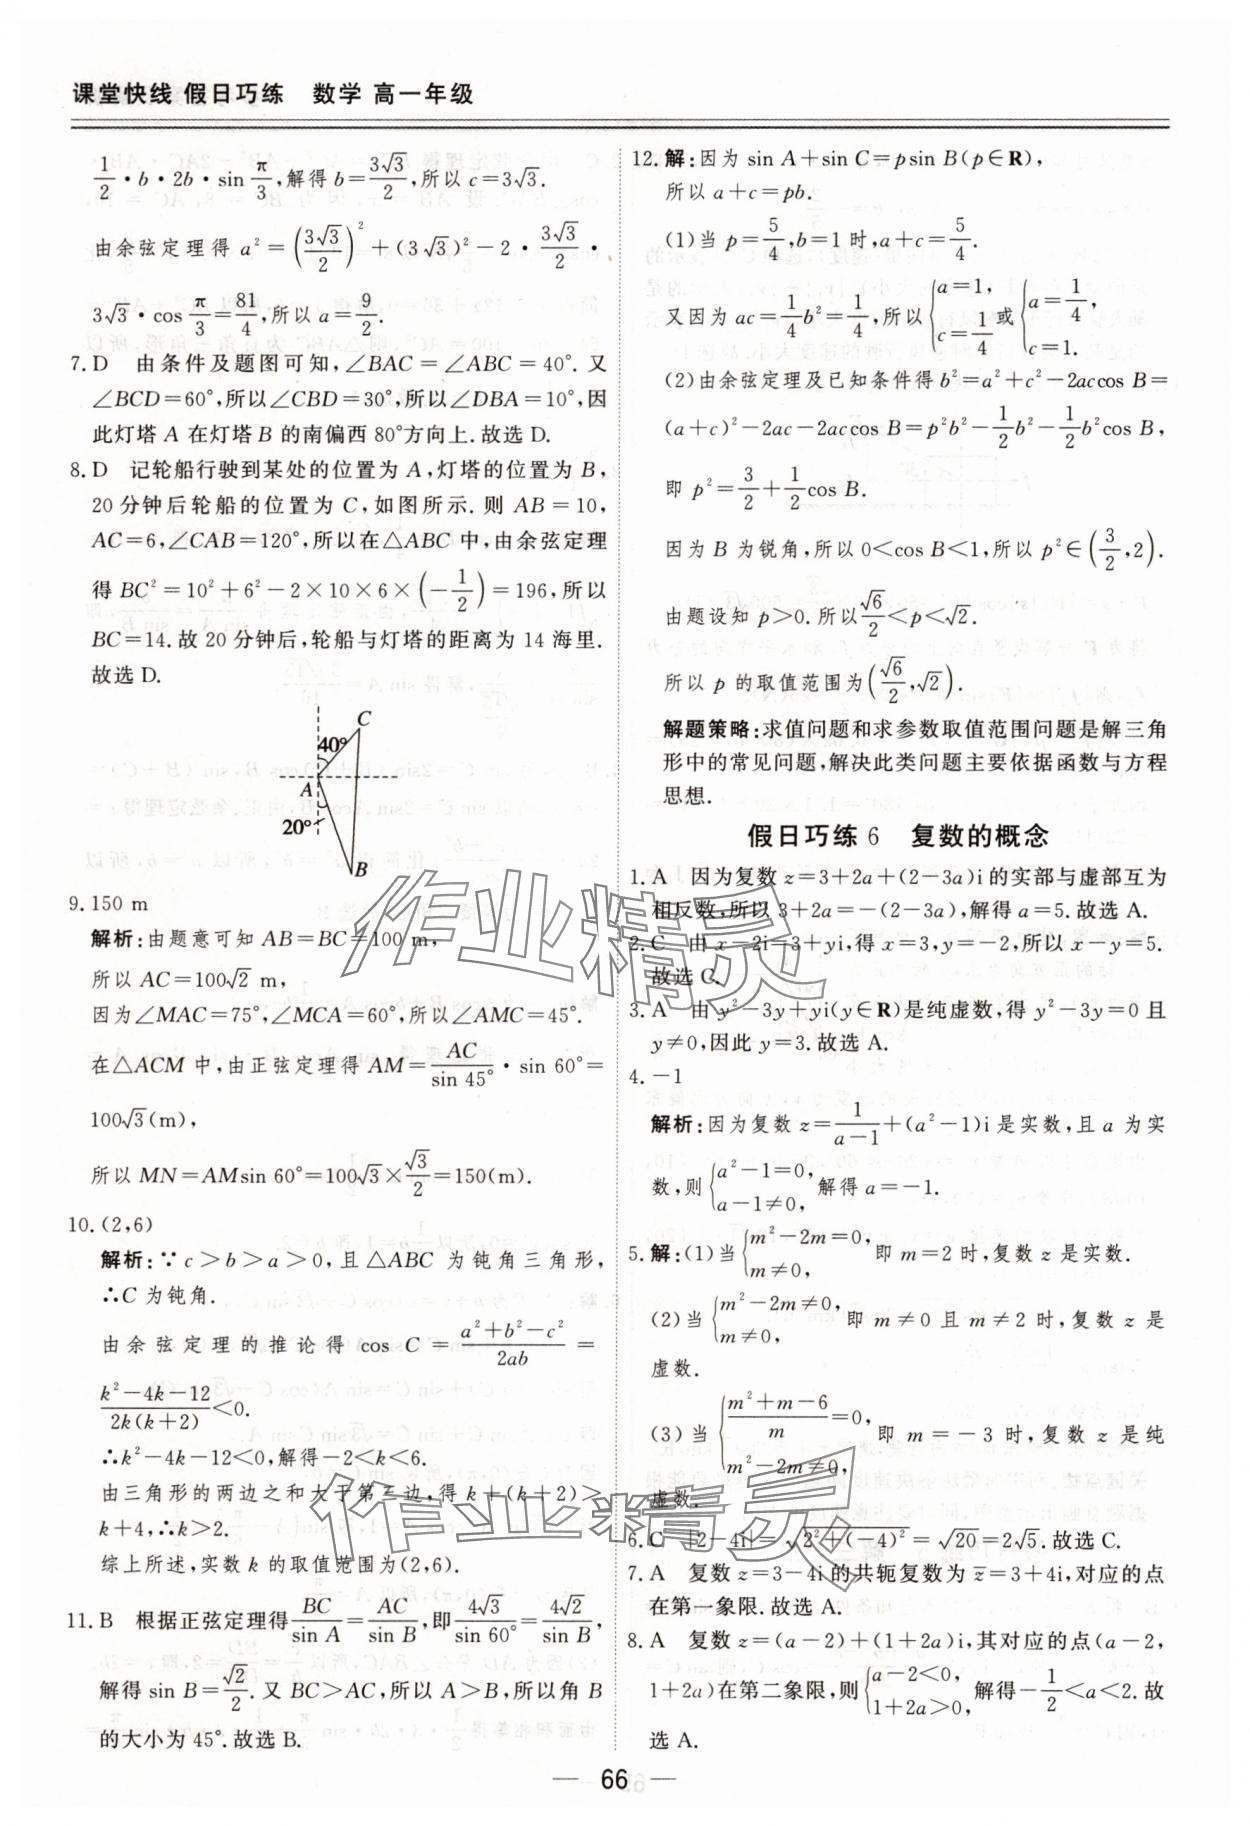 课堂快线 假日巧练 数学 高一年级
1/2·b·2b·sin π/3,解得b=3√3/2,所以c=3√3.
由余弦定理得a²=(3√3/2)²+(3√3)²-2·3√3/2·
3√3·cos π/3=81/4,所以a=9/2.
7. D 由条件及题图可知,∠BAC=∠ABC=40°.又
∠BCD=60°,所以∠CBD=30°,所以∠DBA=10°,因
此灯塔A在灯塔B的南偏西80°方向上.故选D.
8. D 记轮船行驶到某处的位置为A,灯塔的位置为B,
20分钟后轮船的位置为C,如图所示.则AB=10,
AC=6,∠CAB=120°,所以在△ABC中,由余弦定理
得BC²=10²+6²-2×10×6×(-1/2)=196,所以
BC=14.故20分钟后,轮船与灯塔的距离为14海里.
故选D.
C
40°
A
20°
B
9. 150 m
解析:由题意可知AB=BC=100 m,
所以AC=100√2 m,
因为∠MAC=75°,∠MCA=60°,所以∠AMC=45°.
在△ACM中,由正弦定理得AM=AC/sin 45°·sin 60°=
100√3(m),
所以MN=AMsin 60°=100√3×√3/2=150(m).
10. (2,6)
解析:∵c>b>a>0,且△ABC为钝角三角形,
∴C为钝角.
由余弦定理的推论得cos C=(a²+b²-c²)/2ab=
(k²-4k-12)/2k(k+2)<0.
∴k²-4k-12<0,解得-2<k<6.
由三角形的两边之和大于第三边,得k+(k+2)>
k+4,∴k>2.
综上所述,实数k的取值范围为(2,6).
11. B 根据正弦定理得BC/sin A=AC/sin B,即4√3/sin 60°=4√2/sin B,
解得sin B=√2/2.又BC>AC,所以A>B,所以角B
的大小为45°.故选B.
12. 解:因为sin A+sin C=psin B(p∈R),
所以a+c=pb.
(1)当p=5/4,b=1时,a+c=5/4.
又因为ac=1/4b²=1/4,所以{a=1, c=1/4或{a=1/4, c=1.
(2)由余弦定理及已知条件得b²=a²+c²-2accos B=
(a+c)²-2ac-2accos B=p²b²-1/2b²-1/2b²cos B,
即p²=3/2+1/2cos B.
因为B为锐角,所以0<cos B<1,所以p²∈(3/2,2).
由题设知p>0.所以√6/2<p<√2.
所以p的取值范围为(√6/2,√2).
解题策略:求值问题和求参数取值范围问题是解三角
形中的常见问题,解决此类问题主要依据函数与方程
思想.
假日巧练6 复数的概念
1. A 因为复数z=3+2a+(2-3a)i的实部与虚部互为
相反数,所以3+2a=-(2-3a),解得a=5.故选A.
2. C 由x-2i=3+yi,得x=3,y=-2,所以x-y=5.
故选C.
3. A 由y²-3y+yi(y∈R)是纯虚数,得y²-3y=0且
y≠0,因此y=3.故选A.
4. -1
解析:因为复数z=1/(a-1)+(a²-1)i是实数,且a为实
数,则{a²-1=0, a-1≠0,解得a=-1.
5. 解:(1)当{m²-2m=0, m≠0,即m=2时,复数z是实数.
(2)当{m²-2m≠0, m≠0,即m≠0且m≠2时,复数z是
虚数.
(3)当{(m²+m-6)/m=0, m²-2m≠0,即m=-3时,复数z是纯
虚数.
6. C |2-4i|=√(2²+(-4)²)=√20=2√5.故选C.
7. A 复数z=3-4i的共轭复数为z̄=3+4i,对应的点
在第一象限.故选A.
8. A 复数z=(a-2)+(1+2a)i,其对应的点(a-2,
1+2a)在第二象限,则{a-2<0, 1+2a>0,解得-1/2<a<2.故
选A.
— 66 —
作业精灵
作业精灵